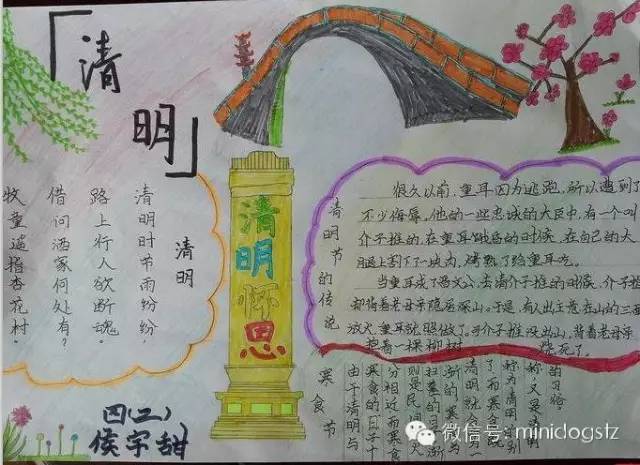 「清明」
清明
清明时节雨纷纷,
路上行人欲断魂。
借问酒家何处有?
牧童遥指杏花村。
四(二)
侯宇甜
清明怀思
清明节的传说
很久以前,重耳因为逃跑,所以遇到了
不少侮辱。他的一些忠诚的大臣中,有一个叫
介子推的,在重耳饿昏的时候,在自己的大
腿上割下了一块肉,烤熟了给重耳吃。
当重耳成了晋文公,去请介子推的时候,介子推
却背着老母亲隐居深山。于是,有人出主意在山的三面
放火,重耳就照做了。可介子推没出山,背着老母亲
抱着一棵柳树 烧死了。
寒食节
由于清明与
寒食的日子十
分相近,而寒食
则是民间
扫墓的
渐的,寒
清明就合
了,而寒食
称为清明
称,又是清明
的习俗。
微信号: minidogstz